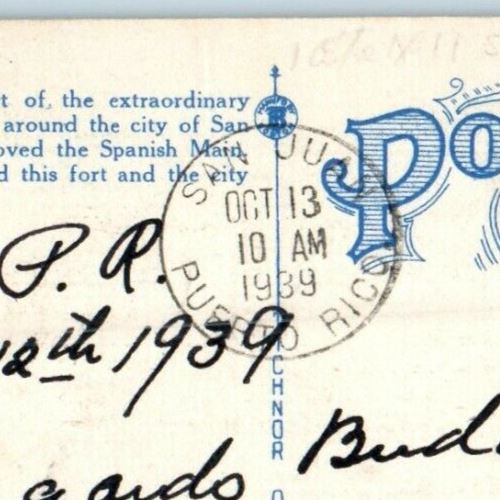 t of, the extraordinary
around the city of San
oved the Spanish Main,
d this fort and the city
SAN JUAN
OCT 13
10 AM
1939
PUERTO RICO
PO
P. R.
12th 1939
CHNOR
Bud